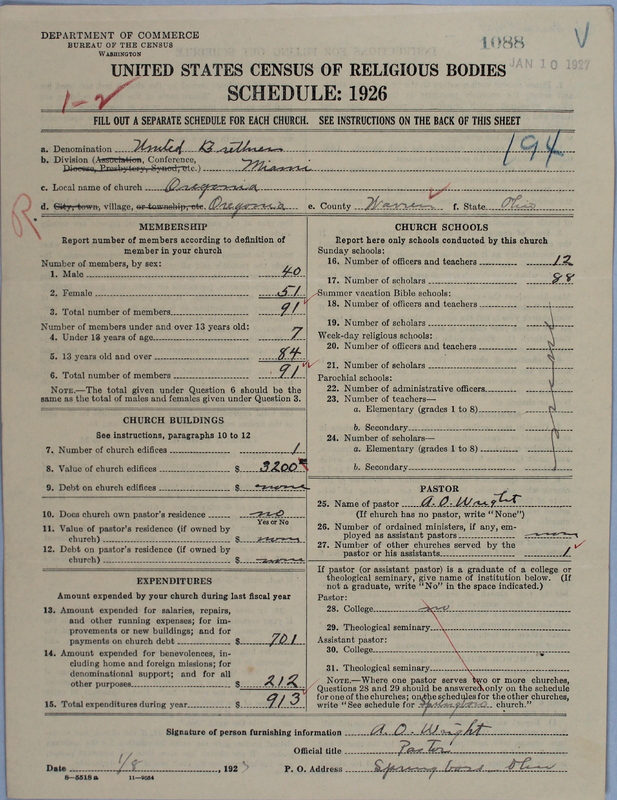 DEPARTMENT OF COMMERCE
BUREAU OF THE CENSUS
WASHINGTON
1088
V
JAN 10 1927
UNITED STATES CENSUS OF RELIGIOUS BODIES
SCHEDULE: 1926
1-2
FILL OUT A SEPARATE SCHEDULE FOR EACH CHURCH. SEE INSTRUCTIONS ON THE BACK OF THIS SHEET
194
a. Denomination United Brethren
b. Division (Association, Conference, Diocese, Presbytery, Synod, etc.) Miami
c. Local name of church Oregonia
d. City, town, village, or township, etc. Oregonia e. County Warren f. State Ohio
R
MEMBERSHIP
Report number of members according to definition of
member in your church
Number of members, by sex:
1. Male 40
2. Female 51
3. Total number of members 91
Number of members under and over 13 years old:
4. Under 13 years of age 7
5. 13 years old and over 84
6. Total number of members 91
NOTE.—The total given under Question 6 should be
same as the total of males and females given under Question 3.
CHURCH BUILDINGS
See instructions, paragraphs 10 to 12
7. Number of church edifices 1
8. Value of church edifices $ 3200
9. Debt on church edifices $ none
10. Does church own pastor's residence no
Yes or No
11. Value of pastor's residence (if owned by
church) $ none
12. Debt on pastor's residence (if owned by
church) $ none
EXPENDITURES
Amount expended by your church during last fiscal year
13. Amount expended for salaries, repairs,
and other running expenses; for im-
provements or new buildings; and for
payments on church debt $ 701
14. Amount expended for benevolences, in-
cluding home and foreign missions; for
denominational support; and for all
other purposes $ 212
15. Total expenditures during year $ 913
CHURCH SCHOOLS
Report here only schools conducted by this church
Sunday schools:
16. Number of officers and teachers 12
17. Number of scholars 88
Summer vacation Bible schools:
18. Number of officers and teachers
19. Number of scholars
Week-day religious schools:
20. Number of officers and teachers
21. Number of scholars
Parochial schools:
22. Number of administrative officers
23. Number of teachers—
a. Elementary (grades 1 to 8)
b. Secondary
24. Number of scholars—
a. Elementary (grades 1 to 8)
b. Secondary
PASTOR
25. Name of pastor A. O. Wright
(If church has no pastor, write "None")
26. Number of ordained ministers, if any, em-
ployed as assistant pastors none
27. Number of other churches served by the
pastor or his assistants 1
If pastor (or assistant pastor) is a graduate of a college or
theological seminary, give name of institution below. (If
not a graduate, write "No" in the space indicated.)
Pastor:
28. College no
29. Theological seminary
Assistant pastor:
30. College
31. Theological seminary
NOTE.—Where one pastor serves two or more churches,
Questions 28 and 29 should be answered only on the schedule
for one of the churches; on the schedules for the other churches,
write "See schedule for Springboro church."
Signature of person furnishing information A. O. Wright
Official title Pastor
Date 1/8, 192 P. O. Address Springboro Ohio
8-5518a 11-9054